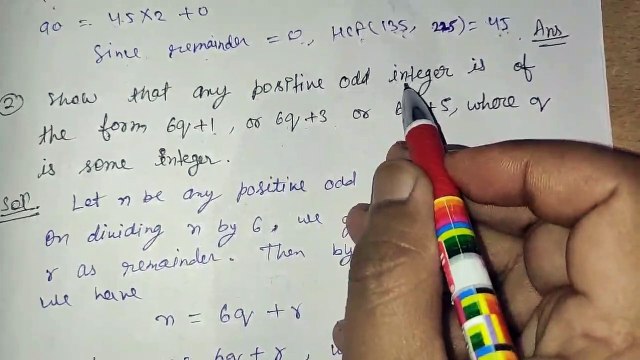 90 = 45×2 + 0
Since remainder = 0, HCF(135, 225) = 45 Ans
② Show that any positive odd integer is of
the form 6q+1, or 6q+3 or +5, where q
is some integer.
Solⁿ. Let n be any positive odd
On dividing n by 6, we
r as remainder. Then by
we have
n = 6q + r
6q + r,